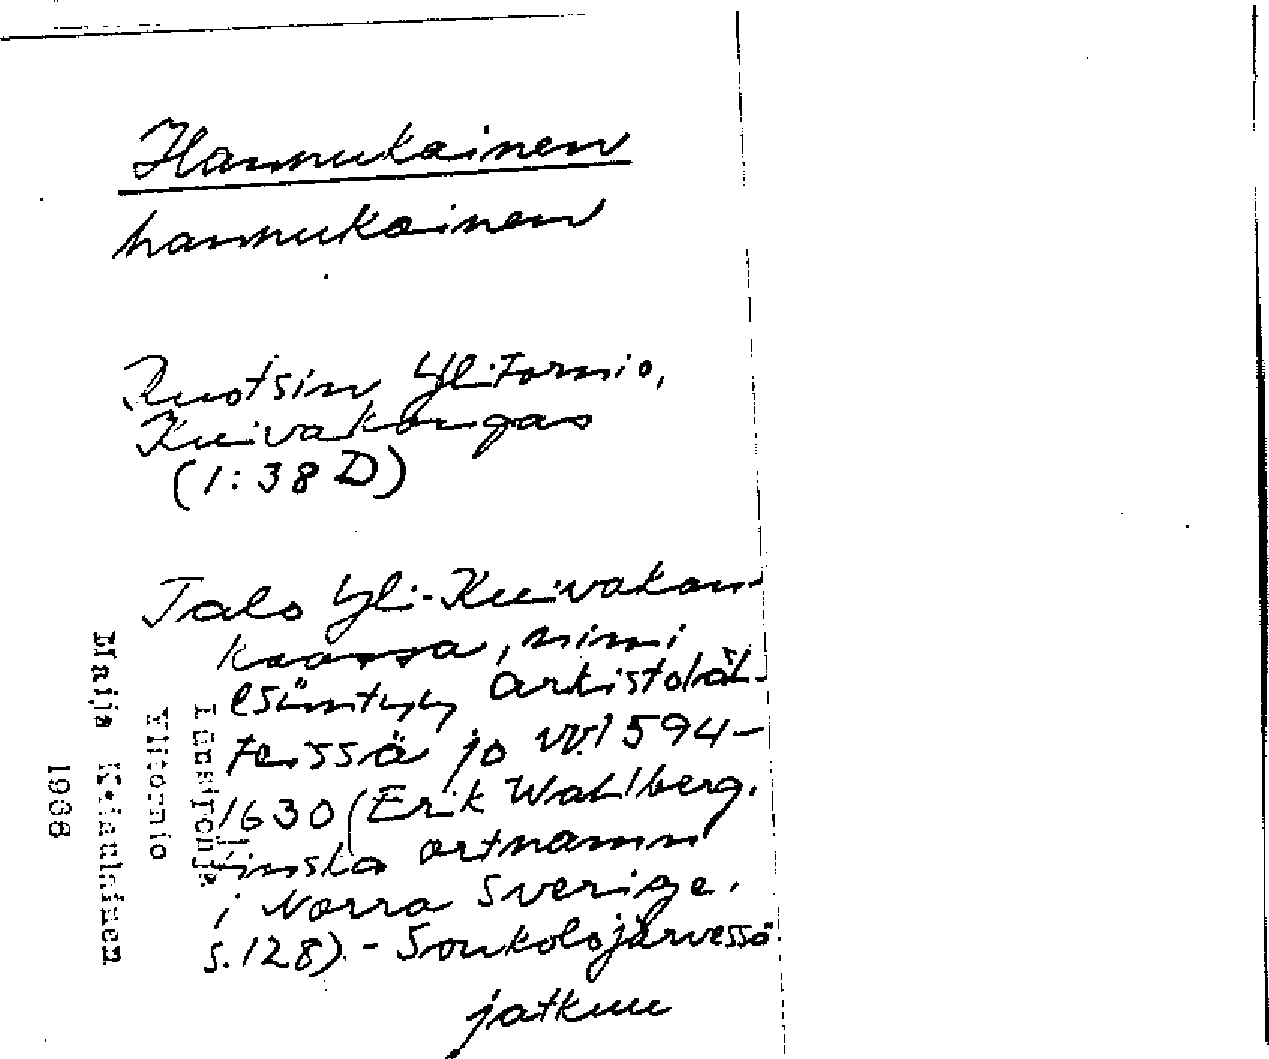 Hannukainen
hannukainen
Ruotsin Ylitornio,
Kuivakangas
(1:38 D)
Talo Yli-Kuivakan-
kaassa, nimi
esiintyy arkistoläh-
teissä jo vv.1594-
1630 (Erik Wahlberg.
Finska ortnamn
i Norra Sverige.
s.128). - Soukolojärvessä
jatkuu
Ylitornio
Maija
1988